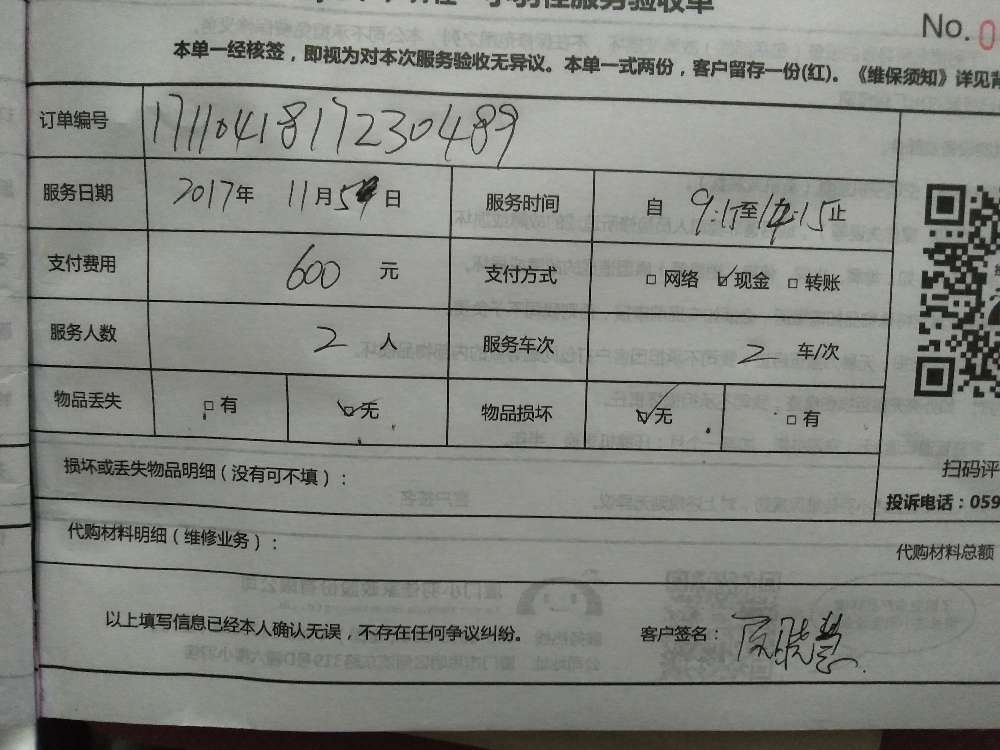 佳服务验收单
No. 0
本单一经核签，即视为对本次服务验收无异议。本单一式两份，客户留存一份(红)。《维保须知》详见背
订单编号 1711041817230489
服务日期 2017年 11月5日 服务时间 自 9:15至14:15止
支付费用 600 元 支付方式 □网络 ☑现金 □转账
服务人数 2 人 服务车次 2 车/次
物品丢失 □有 ☑无 物品损坏 ☑无 □有
损坏或丢失物品明细（没有可不填）：
扫码评
投诉电话：059
代购材料明细（维修业务）：
代购材料总额
以上填写信息已经本人确认无误，不存在任何争议纠纷。 客户签名：